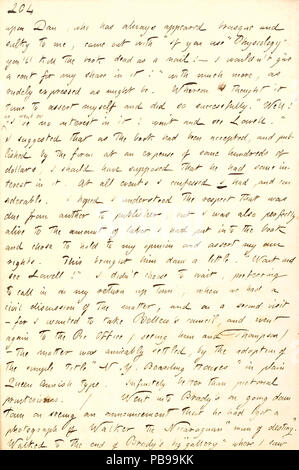 204
upon Dan, who has always appeared brusque and
sulky to me, came out with "if you use "Physiology"
you'll kill the book dead as a nail! — I wouldn't give
a cent for my share in it!" with much more, as
rudely expressed as might be. Whereon I thought it
time to assert myself and did so successfully. "Well!
I've no interest in it! wait and see Lowell.
I suggested that as the book had been accepted, and pub-
lished by the firm at an expense of some hundreds of
dollars, I should have supposed that he had some in-
terest in it. At all events I confessed I had, and con-
siderable. I hoped I understood the respect that was
due from author to publisher, but I was also perfectly
alive to the amount of labor I had put into the book
and chose to hold to my opinion and assert my own
rights. This brought him down a little. "Wait and
see Lowell!" I didn't choose to wait, preferring
to call in on my return up town, when we had a
civil discussion of the matter, and on a second visit
— for I wanted to take Bellew's council, and went
again to the Pic Office, seeing him and Thompson,
the matter was amicably settled, by the adoption of
the simple title "N. Y. Boarding Houses" in plain
Queen Annish type. Infinitely better than pictorial
pretensions. / Went into Brady's on going down
town on seeing an announcement that he had got a
photograph of Walker the Nicaraguan "man of destiny."
Walked to the end of Brady's big gallery where I saw
alamy
PB99KK